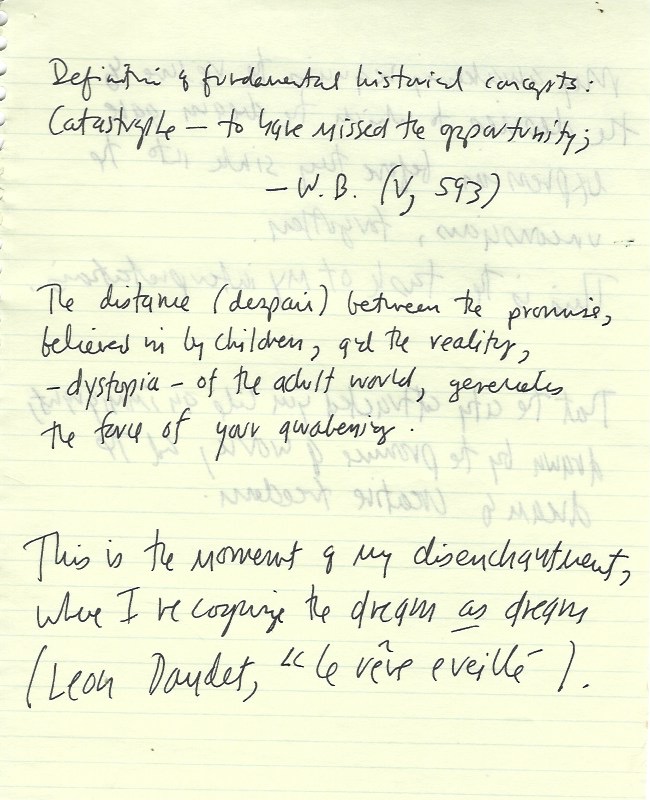 Definition of fundamental historical concepts:
Catastrophe — to have missed the opportunity;
— W.B. (V, 593)
The distance (despair) between the promise,
believed in by children, and the reality,
– dystopia – of the adult world, generates
the force of your awakening.
This is the moment of my disenchantment,
where I recognize the dream as dream
(Leon Daudet, "Le rêve eveillé").